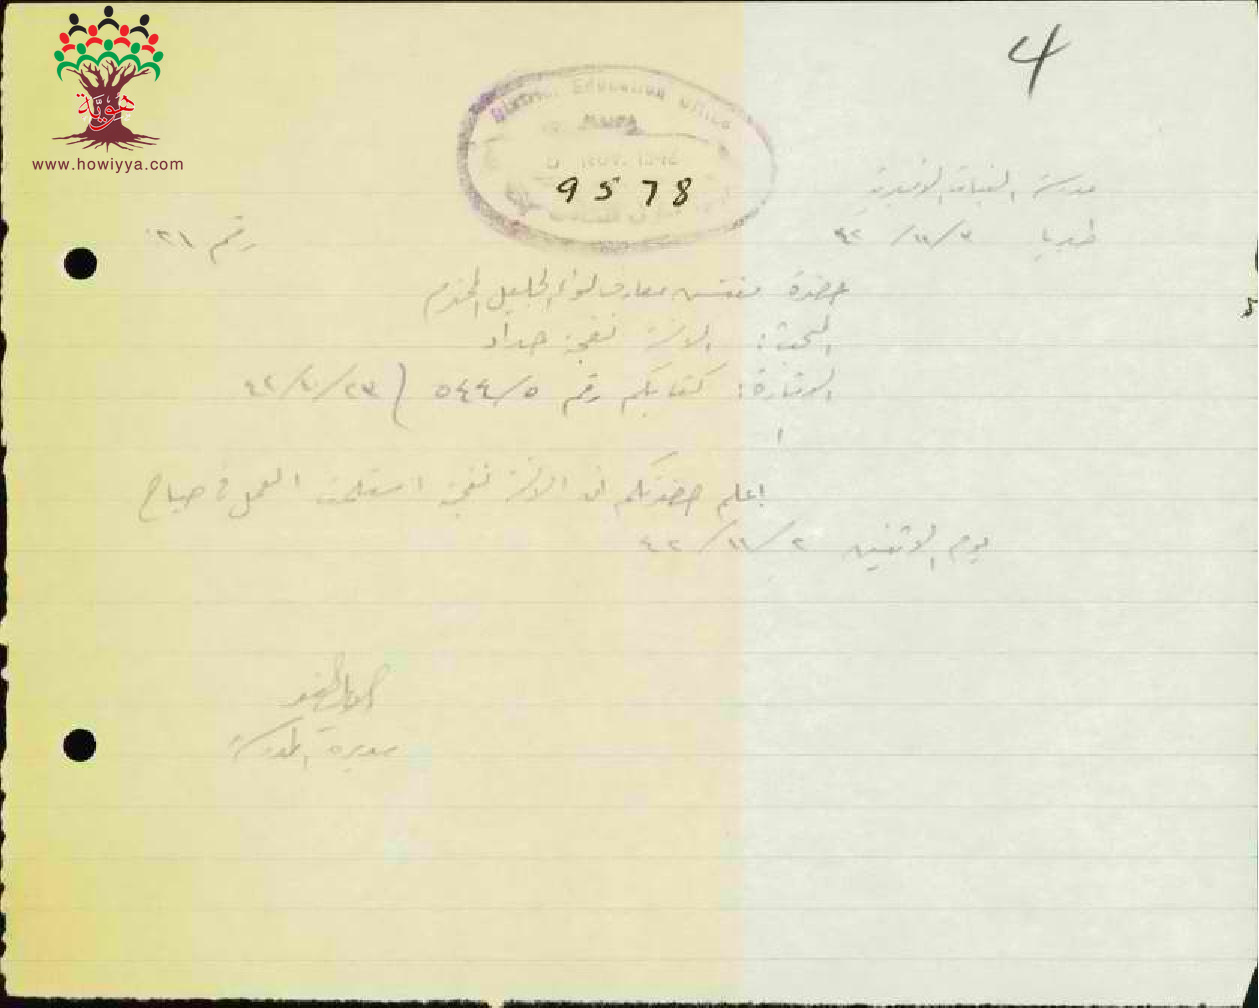 4
هوية
www.howiyya.com
District Education Office
9578
مدرسة البنات الاميرية
طبريا ٣/١١/٤٢
رقم ٢١
حضرة مفتش معارف لواء الجليل المحترم
البحث: الانسة نفجة حداد
الاشارة: كتابكم رقم ٥٤٤/٥ (٢٣/١٠/٤٢
اعلم حضرتكم ان الانسة نفجة استلمت العمل في صباح
يوم الاثنين ٢/١١/٤٢
مديرة المدرسة